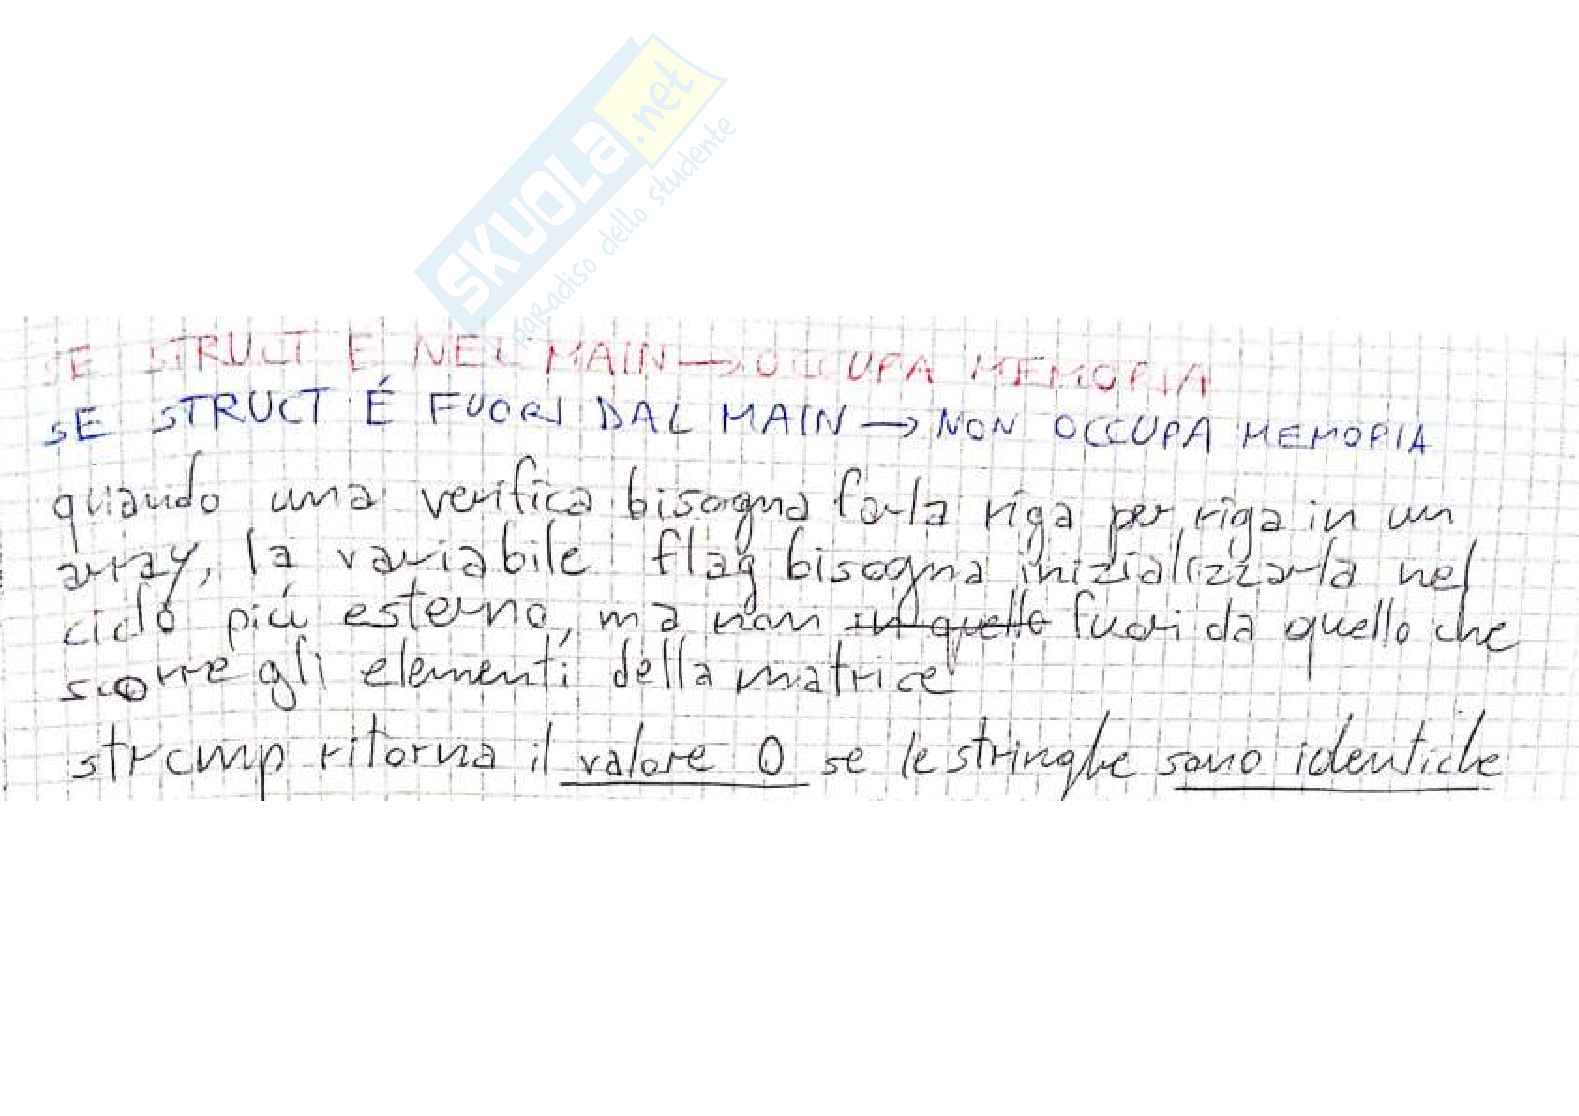 SKUOLA.net
paradiso dello studente
SE STRUCT E NEL MAIN → OCCUPA MEMORIA
SE STRUCT É FUORI DAL MAIN → NON OCCUPA MEMORIA
quando una verifica bisogna farla riga per riga in un
array, la variabile flag bisogna inizializzarla nel
ciclo più esterno, ma non in quello fuori da quello che
scorre gli elementi della matrice
strcmp ritorna il valore 0 se le stringhe sono identiche